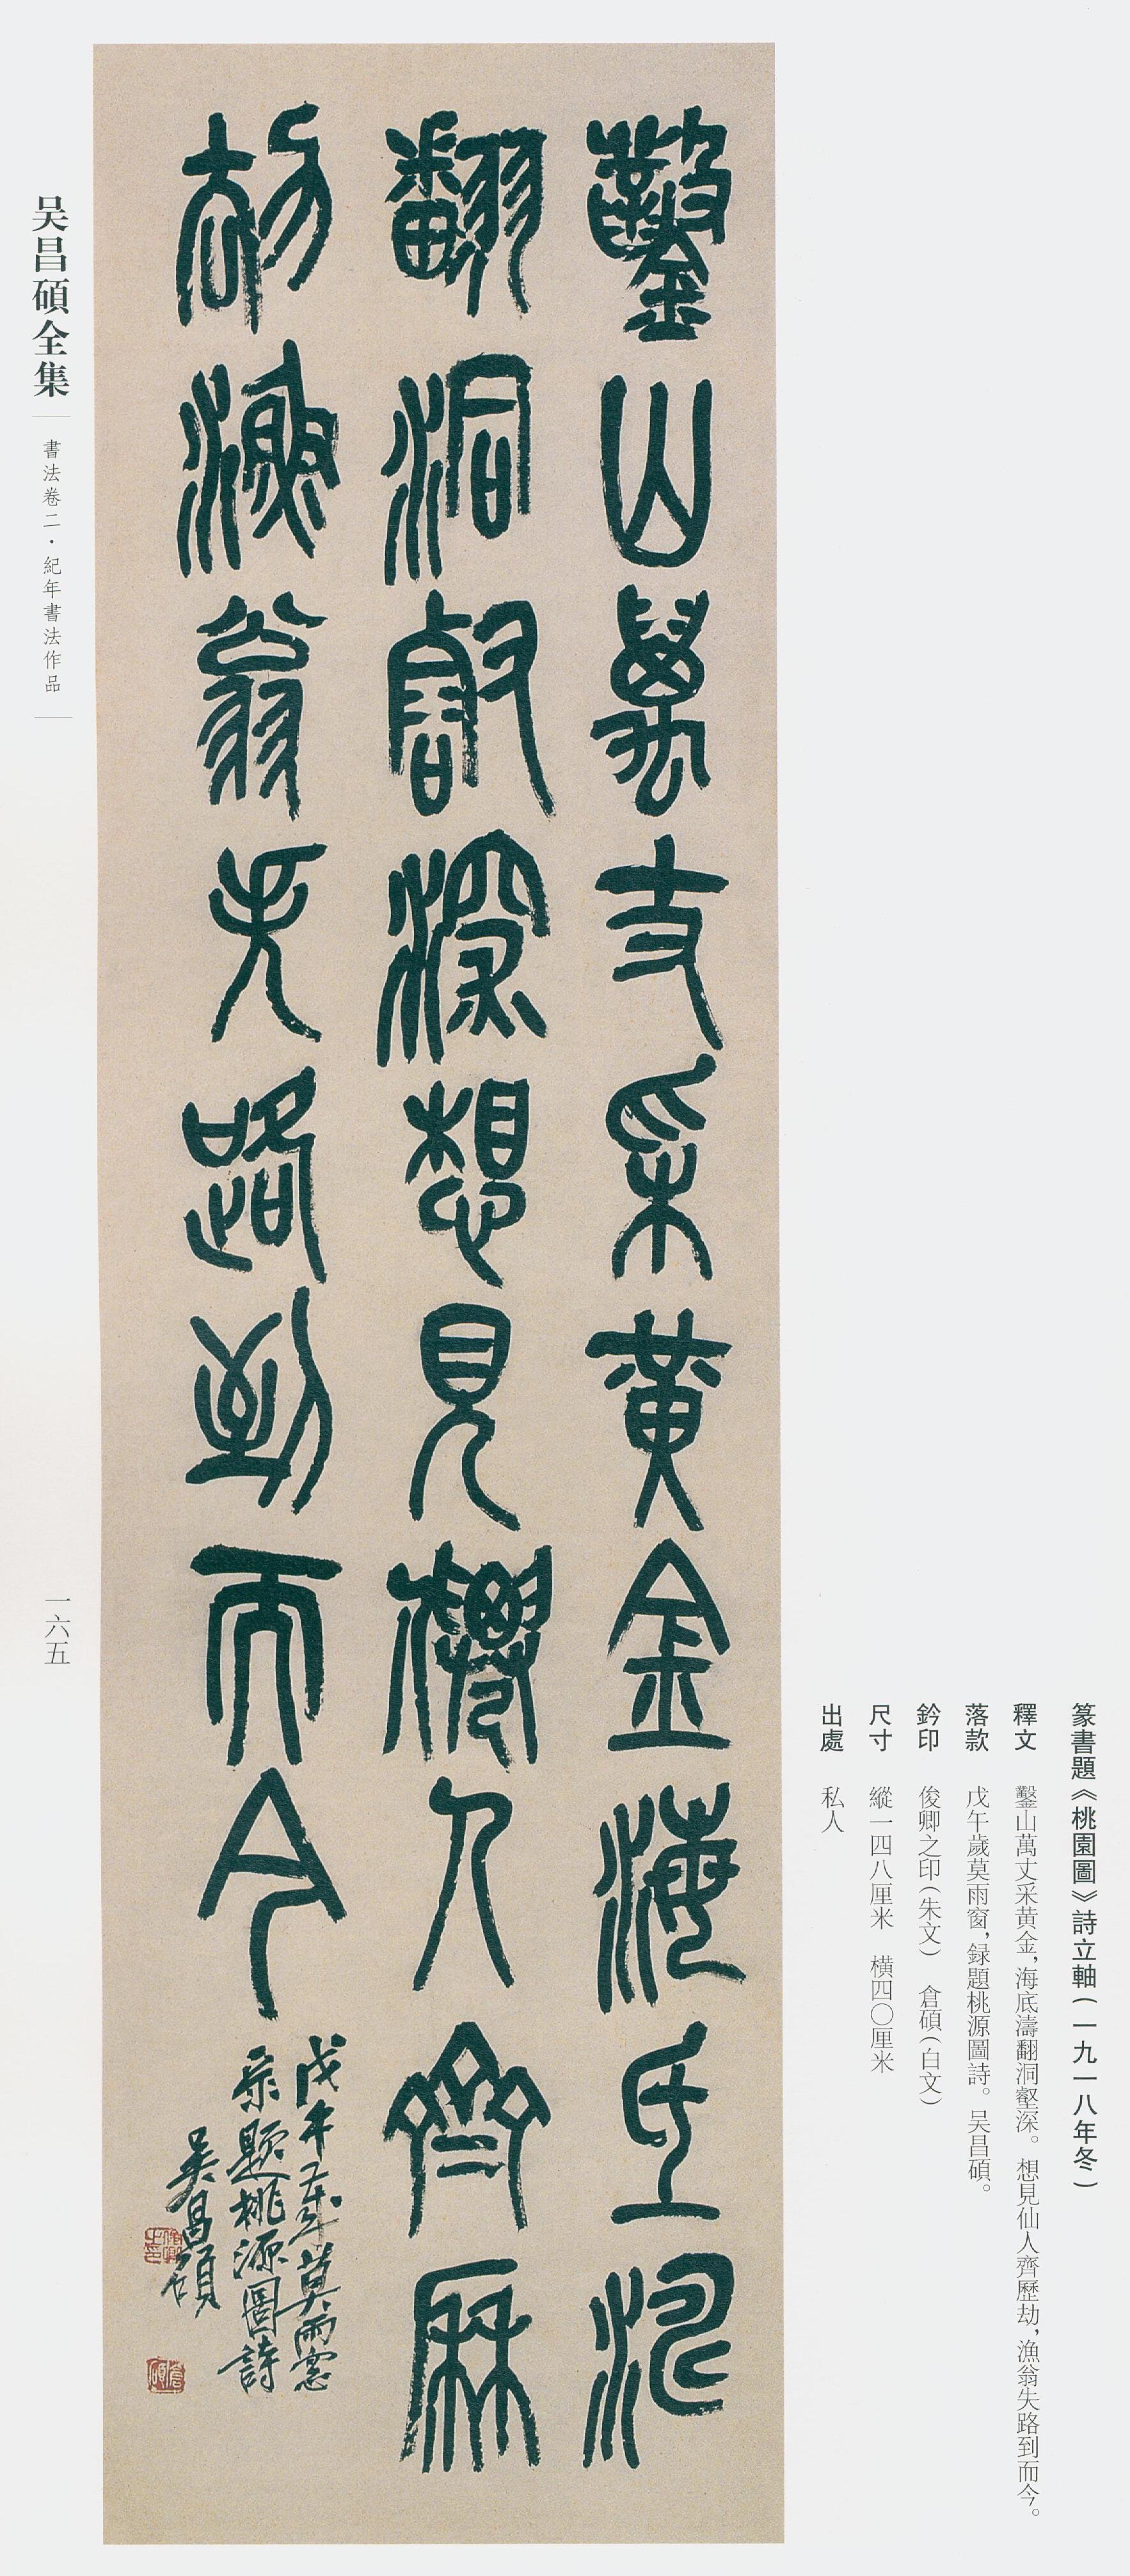 篆書題《桃園圖》詩立軸(一九一八年冬)
釋文 鑿山萬丈采黄金,海底濤翻洞壑深。想見仙人齊歷劫,漁翁失路到而今。
落款 戊午歲莫雨窗,録題桃源圖詩。吴昌碩。
鈐印 俊卿之印(朱文) 倉碩(白文)
尺寸 縱一四八厘米 橫四〇厘米
出處 私人
鑿山萬丈采黄金海氐濤
翻洞壑深想見僊人齊厤
劫漁翁失路到而今
戊午歲莫雨窗
录題桃源圖詩
吳昌碩
俊卿之印
倉碩
吴昌碩全集
書法卷二·紀年書法作品
一六五